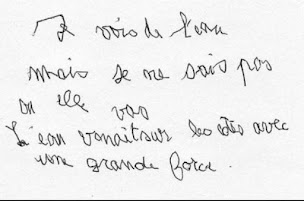 Je vois de l'eau
mais je ne sais pas
ou elle vas
L'eau venait sur les cotés avec
une grande force.